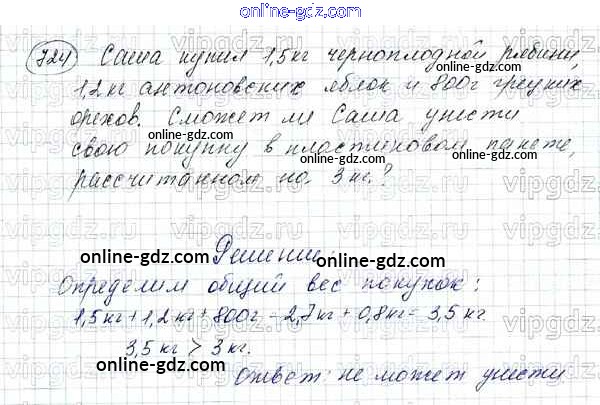 724 Саша купил 1,5кг черноплодной рябини,
1,2 кг антоновских яблок и 800г грецких
орехов. Сможет ли Саша унести
свою покупку в пластиковом пакете,
рассчитанном на 3 кг.?
Решение:
Определим общий вес покупок:
1,5кг + 1,2 кг + 800г = 2,7кг + 0,8кг = 3,5 кг.
3,5 кг > 3 кг.
Ответ: не может унести.
online-gdz.com
online-gdz.com
online-gdz.com
online-gdz.com
online-gdz.com
online-gdz.com
online-gdz.com
online-gdz.com
online-gdz.com
online-gdz.com